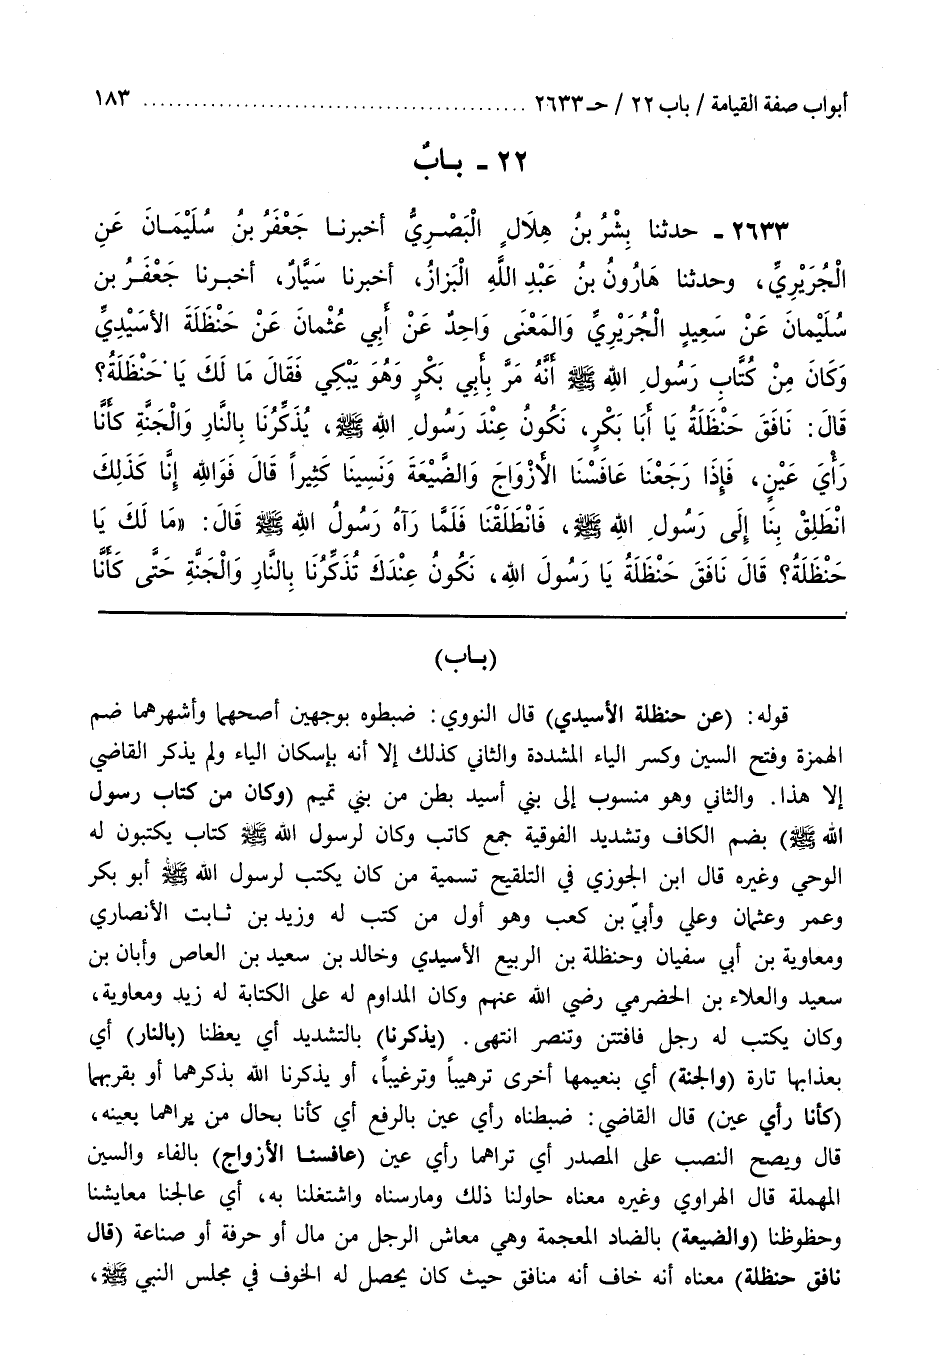 أبواب صفة القيامة / باب ٢٢ / حـ ٢٦٣٣ ............................................. ١٨٣
٢٢ ـ بـابٌ
٢٦٣٣ ـ حدثنا بِشْرُ بنُ هِلَالٍ الْبَصْـرِيُّ أخبرنـا جَعْفَرُ بنُ سُلَيْمَـانَ عَنِ
الْجُرَيْرِيِّ، وحدثنا هَارُونُ بنُ عَبْدِ اللَّهِ الْبَزازُ، أخبرنا سَيَّارٌ، أخبـرنا جَعْفَـرُ بن
سُلَيْمانَ عَنْ سَعِيدٍ الْجُرَيْرِيِّ وَالمَعْنَى وَاحِدٌ عَنْ أَبي عُثْمانَ عَنْ حَنْظَلَةَ الأسَيْدِيِّ
وَكَانَ مِنْ كُتَّابِ رَسُولِ اللهِ ﷺ أَنَّهُ مَرَّ بِأَبي بَكْرٍ وَهُوَ يَبْكِي فَقَالَ مَا لَكَ يَا حَنْظَلَةُ؟
قَالَ: نَافَقَ حَنْظَلَةُ يَا أَبَا بَكْرٍ، نَكُونُ عِنْدَ رَسُولِ اللهِ ﷺ، يُذَكِّرُنَا بِالنَّارِ وَالْجَنَّةِ كأنَّا
رَأْيَ عَيْنٍ، فَإِذَا رَجَعْنَا عَافَسْنَا الْأَزْوَاجَ وَالضَّيْعَةَ وَنَسِينَا كَثِيراً قَالَ فَوَاللهِ إِنَّا كَذَلِكَ
انْطَلِقْ بِنَا إِلَى رَسُولِ اللهِ ﷺ، فَانْطَلَقْنَا فَلَمَّا رَآهُ رَسُولُ اللهِ ﷺ قَالَ: «مَا لَكَ يَا
حَنْظَلَةُ؟ قَالَ نَافَقَ حَنْظَلَةُ يَا رَسُولَ اللهِ، نَكُونُ عِنْدَكَ تُذَكِّرُنَا بِالنَّارِ وَالْجَنَّةِ حَتَّى كَأنَّا
(بـاب)
قوله: (عن حنظلة الأسيدي) قال النووي: ضبطوه بوجهين أصحهما وأشهرهما ضم
الهمزة وفتح السين وكسر الياء المشددة والثاني كذلك إلا أنه بإسكان الياء ولم يذكر القاضي
إلا هذا. والثاني وهو منسوب إلى بني أسيد بطن من بني تميم (وكان من كتاب رسول
الله ﷺ) بضم الكاف وتشديد الفوقية جمع كاتب وكان لرسول الله ﷺ كتاب يكتبون له
الوحي وغيره قال ابن الجوزي في التلقيح تسمية من كان يكتب لرسول الله ﷺ أبو بكر
وعمر وعثمان وعلي وأبيّ بن كعب وهو أول من كتب له وزيد بن ثـابت الأنصاري
ومعاوية بن أبي سفيان وحنظلة بن الربيع الأسيدي وخالد بن سعيد بن العاص وأبان بن
سعيد والعلاء بن الحضرمي رضي الله عنهم وكان المداوم له على الكتابة له زيد ومعاوية،
وكان يكتب له رجل فافتتن وتنصر انتهى. (يذكرنا) بالتشديد أي يعظنا (بالنار) أي
بعذابها تارة (والجنة) أي بنعيمها أخرى ترهيباً وترغيباً، أو يذكرنا الله بذكرهما أو بقربهما
(كأنا رأي عين) قال القاضي: ضبطناه رأي عين بالرفع أي كأنا بحال من يراهما بعينه،
قال ويصح النصب على المصدر أي تراهما رأي عين (عافسنـا الأزواج) بالفاء والسين
المهملة قال الهراوي وغيره معناه حاولنا ذلك ومارسناه واشتغلنا به، أي عالجنا معايشنا
وحظوظنا (والضيعة) بالضاد المعجمة وهي معاش الرجل من مال أو حرفة أو صناعة (قال
نافق حنظلة) معناه أنه خاف أنه منافق حيث كان يحصل له الخوف في مجلس النبي ﷺ،